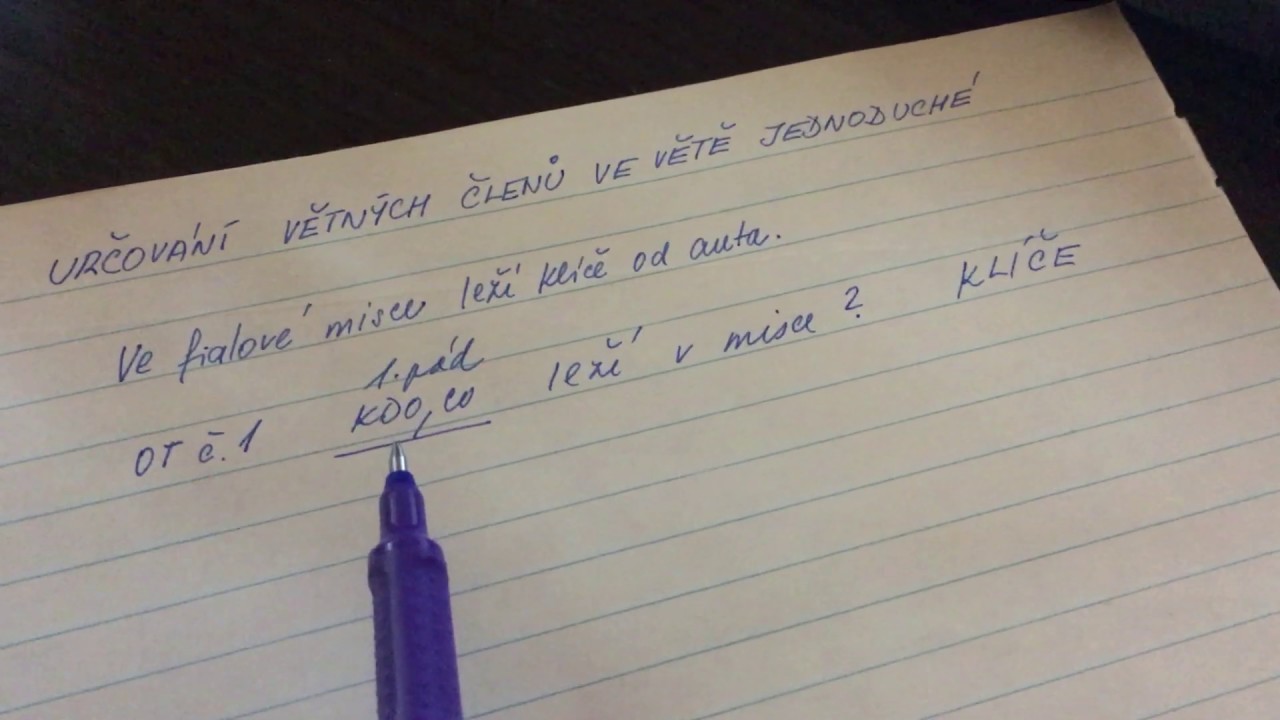 URČOVÁNÍ VĚTNÝCH ČLENŮ VE VĚTĚ JEDNODUCHÉ
Ve fialové misce leží klíče od auta.
1. pád
OT č. 1 KDO, CO leží v misce? KLÍČE